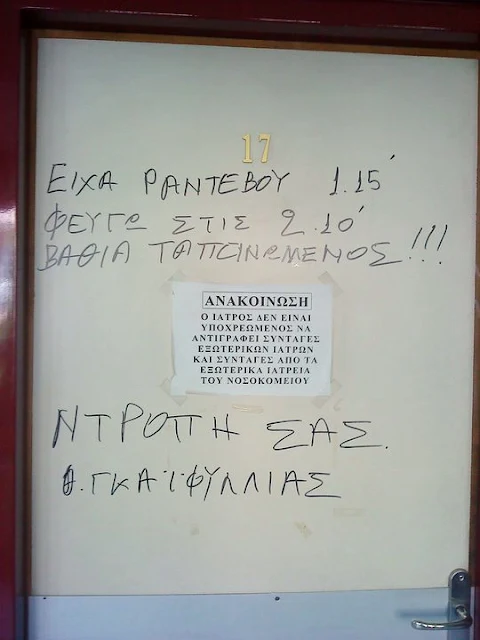 17
ΕΙΧΑ ΡΑΝΤΕΒΟΥ 1.15΄
ΦΕΥΓΩ ΣΤΙΣ 2.10΄
ΒΑΘΙΑ ΤΑΠΕΙΝΩΜΕΝΟΣ!!!
ΑΝΑΚΟΙΝΩΣΗ
Ο ΙΑΤΡΟΣ ΔΕΝ ΕΙΝΑΙ
ΥΠΟΧΡΕΩΜΕΝΟΣ ΝΑ
ΑΝΤΙΓΡΑΦΕΙ ΣΥΝΤΑΓΕΣ
ΕΞΩΤΕΡΙΚΩΝ ΙΑΤΡΩΝ
ΚΑΙ ΣΥΝΤΑΓΕΣ ΑΠΟ ΤΑ
ΕΞΩΤΕΡΙΚΑ ΙΑΤΡΕΙΑ
ΤΟΥ ΝΟΣΟΚΟΜΕΙΟΥ
ΝΤΡΟΠΗ ΣΑΣ.
Θ.ΓΚΑΪΦΥΛΛΙΑΣ